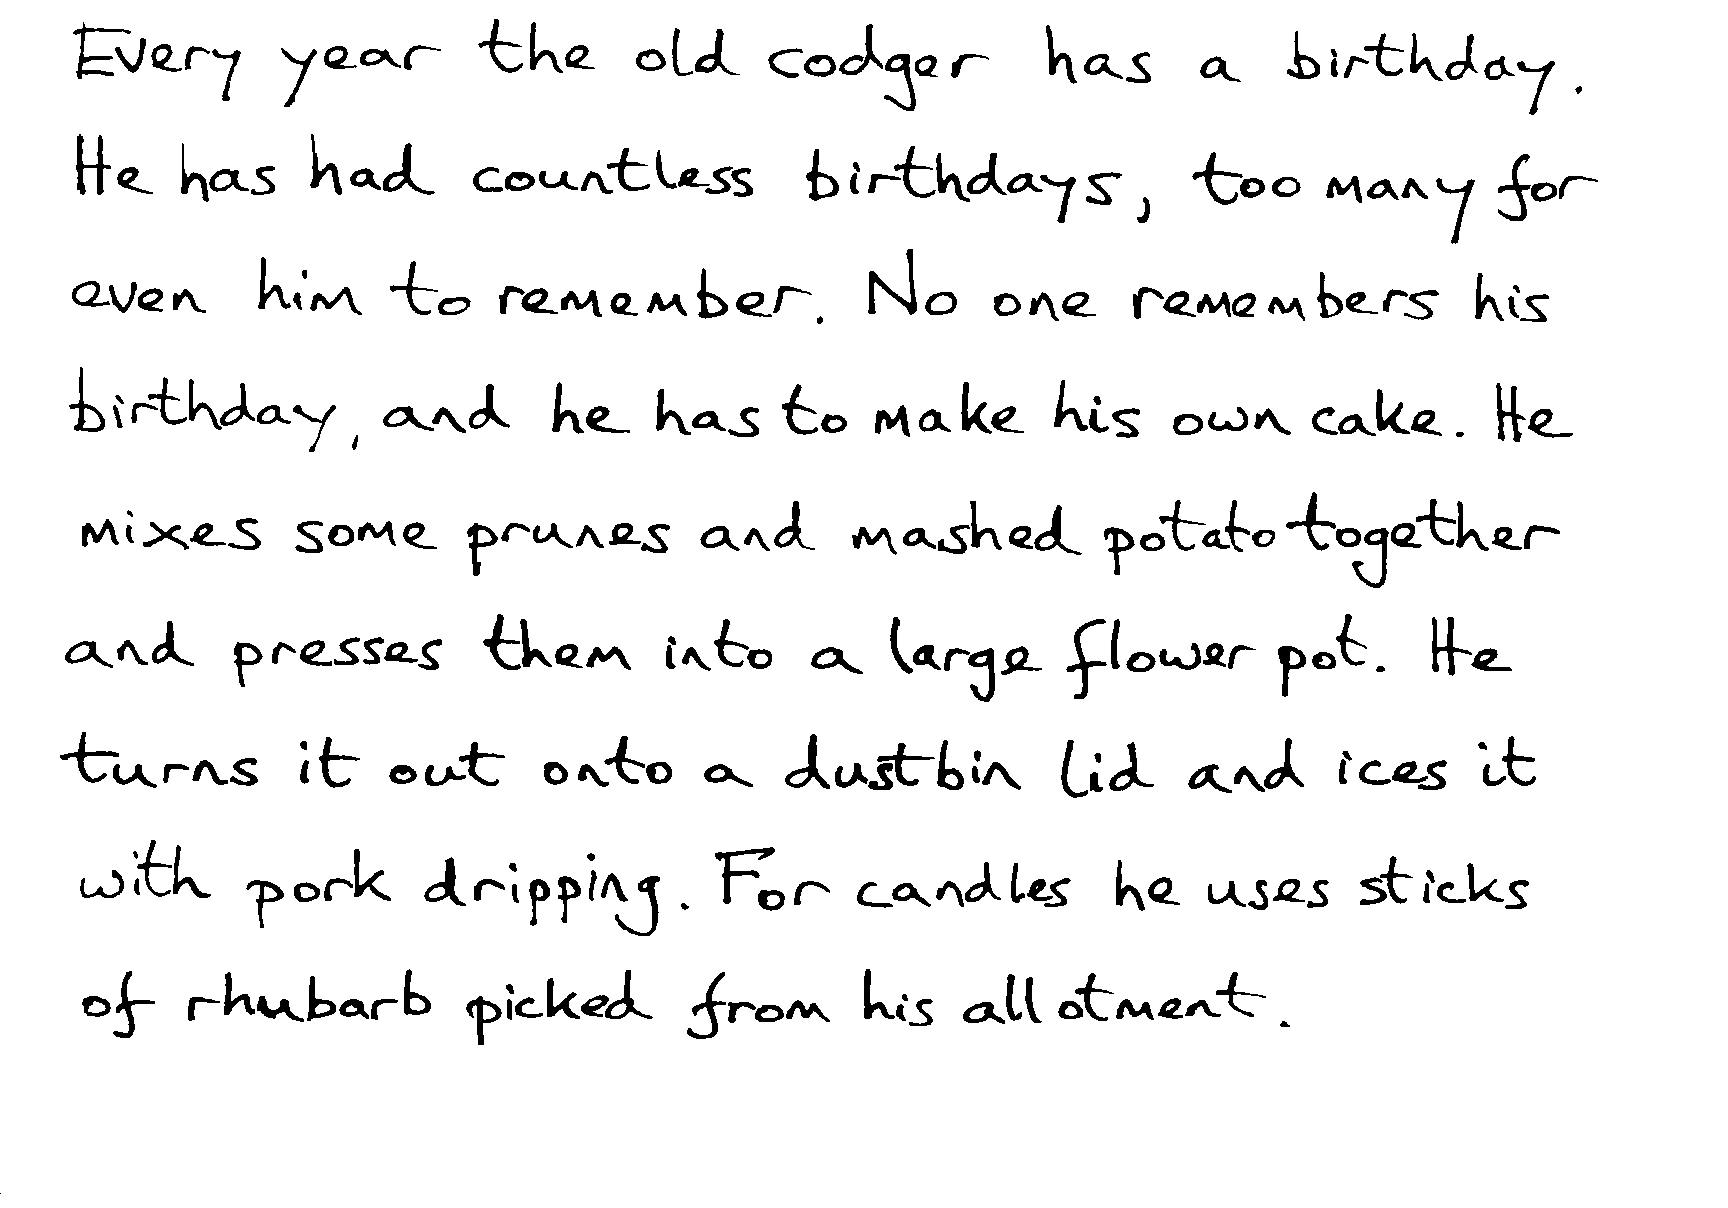 Every year the old codger has a birthday.
He has had countless birthdays, too many for
even him to remember. No one remembers his
birthday, and he has to make his own cake. He
mixes some prunes and mashed potato together
and presses them into a large flower pot. He
turns it out onto a dustbin lid and ices it
with pork dripping. For candles he uses sticks
of rhubarb picked from his allotment.